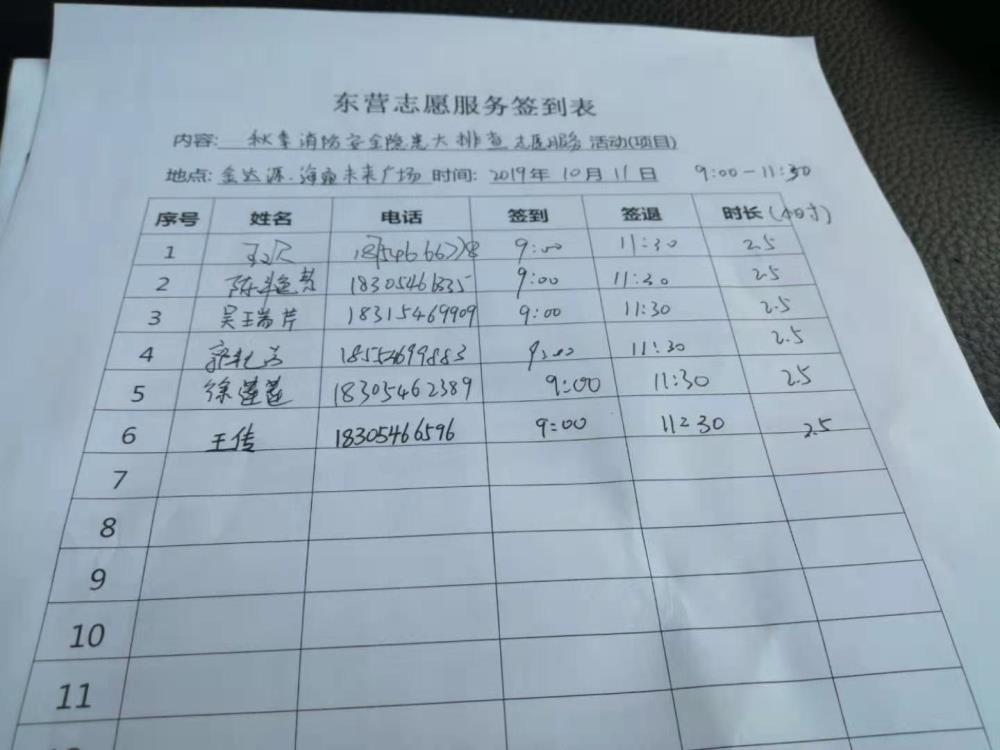 东营志愿服务签到表
内容: 秋季消防安全隐患大排查志愿服务 活动(项目)
地点: 金达源·海 未来广场 时间: 2019年 10月 11日 9:00-11:30
序号 姓名 电话 签到 签退 时长(小时)
1 9:00 11:30 2.5
2 陈 9:00 11:30 2.5
3 吴玉瑞芹 18315469909 9:00 11:30 2.5
4 18554699883 9:00 11:30 2.5
5 徐莲莲 18305462389 9:00 11:30 2.5
6 王传 18305466596 9:00 11:30 2.5
7
8
9
10
11